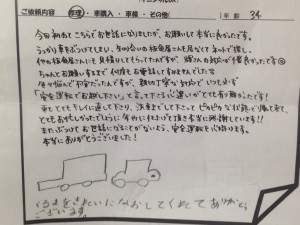 ご依頼内容 修理・車購入・車検・その他( 年齢 34
今回初めてこちらでお世話になりましたが、お願いして本当に良かったです。
うっかり車をぶつけてしまい、知り合いの板金屋さんも居なくてネットで探し、
他の板金屋さんにも見積りしてもらったんですが、
ちゃんとお願いするまで何度もお電話してすみませんでした
色々悩んで不安だったんですが、最初から丁寧な対応でいつも必ず
「安全運転でお越し下さい」と言って下さる心遣いがとても有り難かったです!
車もとてもキレイに直して下さり、洗車までして下さってピカピカな状態で帰って来て、
とてもお忙しかったでしょうに早めに仕上げて頂き本当に感謝しています!!
またぶつけてお世話になることがないよう、安全運転を心掛けます。
本当にありがとうございました!
くるまをきれいになおしてくれてありがとう
ございます。